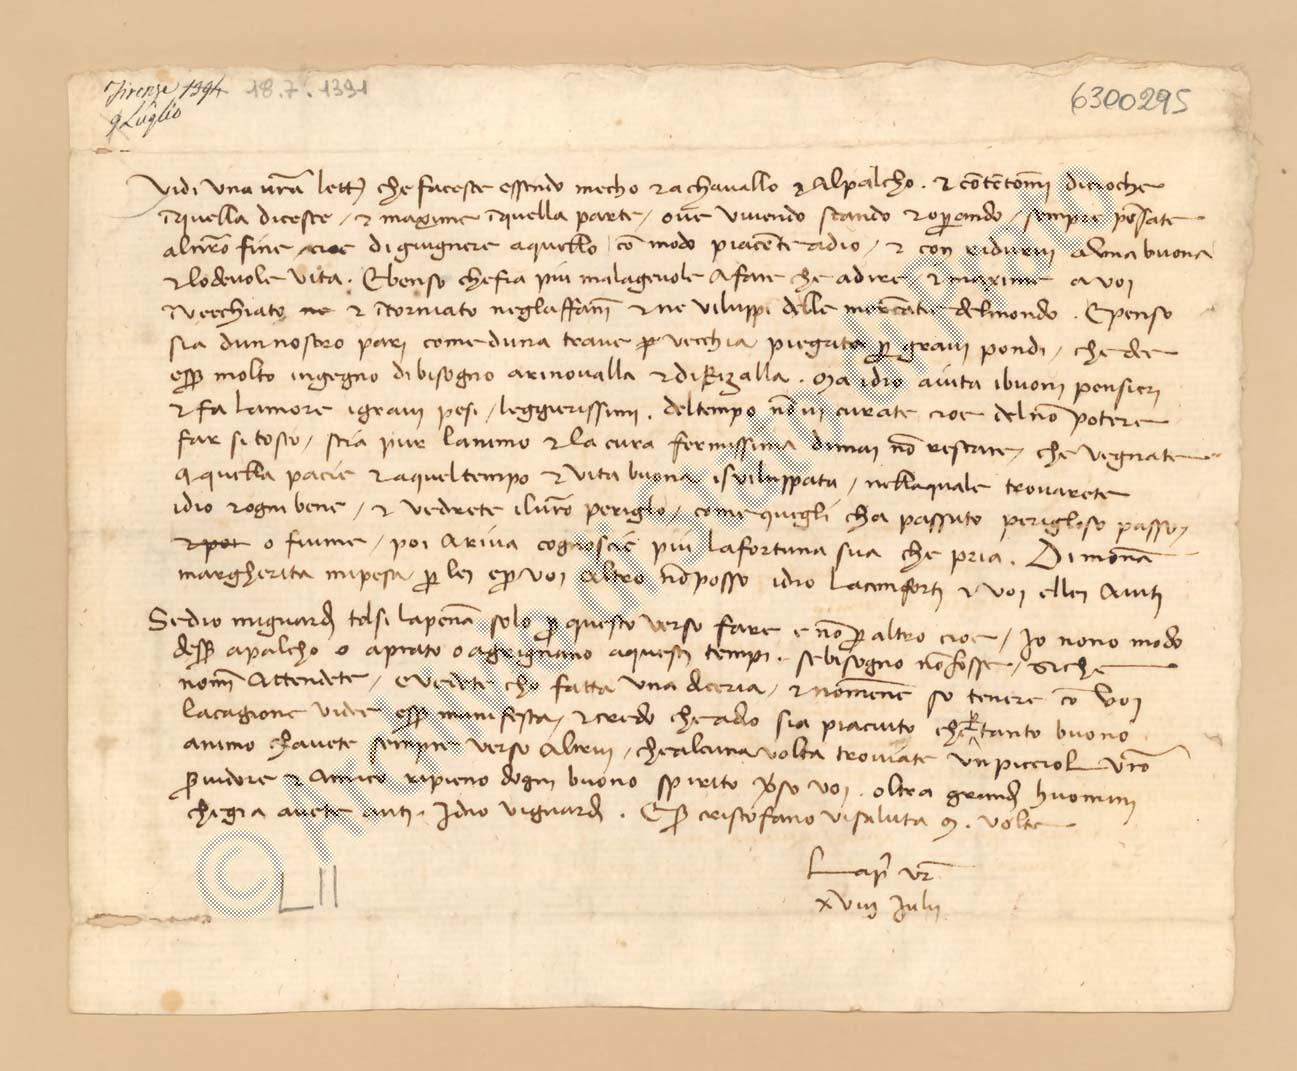 Firenze 1394 18.7.1391
9 Luglio
6300295
Vidi una vr̄a lett. che faceste essendo mecho et a chavallo et Alpalcho. et cōtētom̄i di cio che
ī quella diceste / et maxime ī quella parte / ove vivendo stando et operando / sempre pēsate
al vr̄o fine / cioe di giugnere a quello cō modo piacēte a dio / et con ridurvi a una buona
et lodevole vita. E benso che fia piu malagevole a fare che a dire et maxime a voi
īvecchiato ne et ītorniato negl affāni et ne viluppi delle mercātie del mondo. E penso
sia d un nostro pari come d una trave vecchia piegata p gravi pondi / che de
esse molto ingegno di bisogno a rinovalla et dirizalla. Ma idio aiuta i buoni pensieri
et fa l amore i gravi pesi / leggierissimi. del tempo nō vi curate cioe del nō potere
far si tosto / stia pur l animo et la cura fermissima di mai nō restare / che vegniate
a quella pacie et a quel tempo et vita buona isviluppata / nella quale trovarete
idio et ogni bene / et vedrete il vr̄o periglo / come quegli ch a passato periglioso passo /
et poi o fiume / poi ariva cognoscie piu la fortuna sua che pria. Di monā
margherita mi pesa p lei e p voi altro nō posso idio la conforti et voi ellei aiuti
Se dio mi guardi tolsi la penā solo p questo verso fare e nō p altro cioe / Io nōn o modo
d esse a palcho o a prato o a grignano a questi tempi. se bisogno nō fosse / siche
nom̄i attendete / e vedete ch o fatta una diceria / et nōmene so tenere cō voi
la cagione vi de esse manifesta / et credo che a dio sia piaciuto che p tanto buono
animo ch avete sempre verso altrui / che alcuna volta troviate un picciol vr̄o
s̄vidore et amico ripieno d ogni buono spirito v̄so voi. oltra grandi huomini
che gia avete avuti. Idio vi guardi. E S cristofano vi saluta M. volte
Lap̄ vr̄
xviij Julij
LII
©